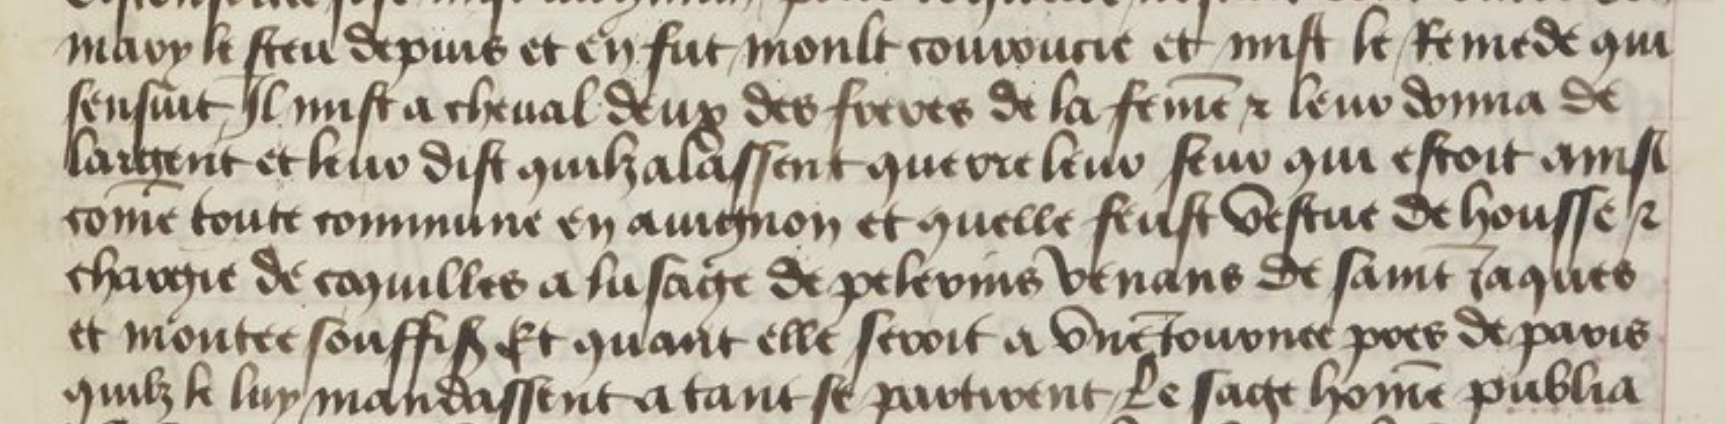 mary le sceu depuis et en fut moult courroucie et mist le Remede qui
sensuit Il mist a cheval deux des freres de la feme᷒ ⁊ leur donna de
largent et leur dist quilz alassent querre leur seur qui estoit ainsi
come᷒ toute commune en avignon et quelle feust vestue de housse ⁊
chargie de coquilles a lusage de pelerins venans de saint Jaques
et montee souffisʒ Et quant elle seroit a une Journee pres de paris
quilz le luy mandassent a tant se partirent Le sage home᷒ publia